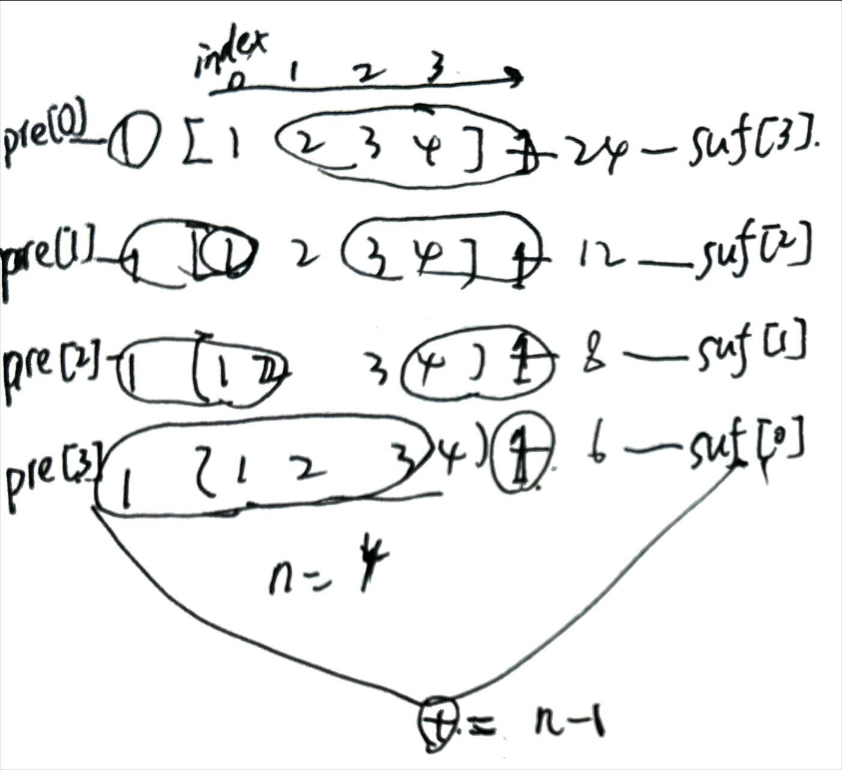 index
0 1 2 3
pre[0] 1 [ 1 2 3 4 ] 1 24 — suf[3].
pre[1] 1 [ 1 2 3 4 ] 1 12 — suf[2]
pre[2] 1 [ 1 2 3 4 ] 1 8 — suf[1]
pre[3] 1 [ 1 2 3 4 ] 1 6 — suf[0]
n = 4
+ = n-1